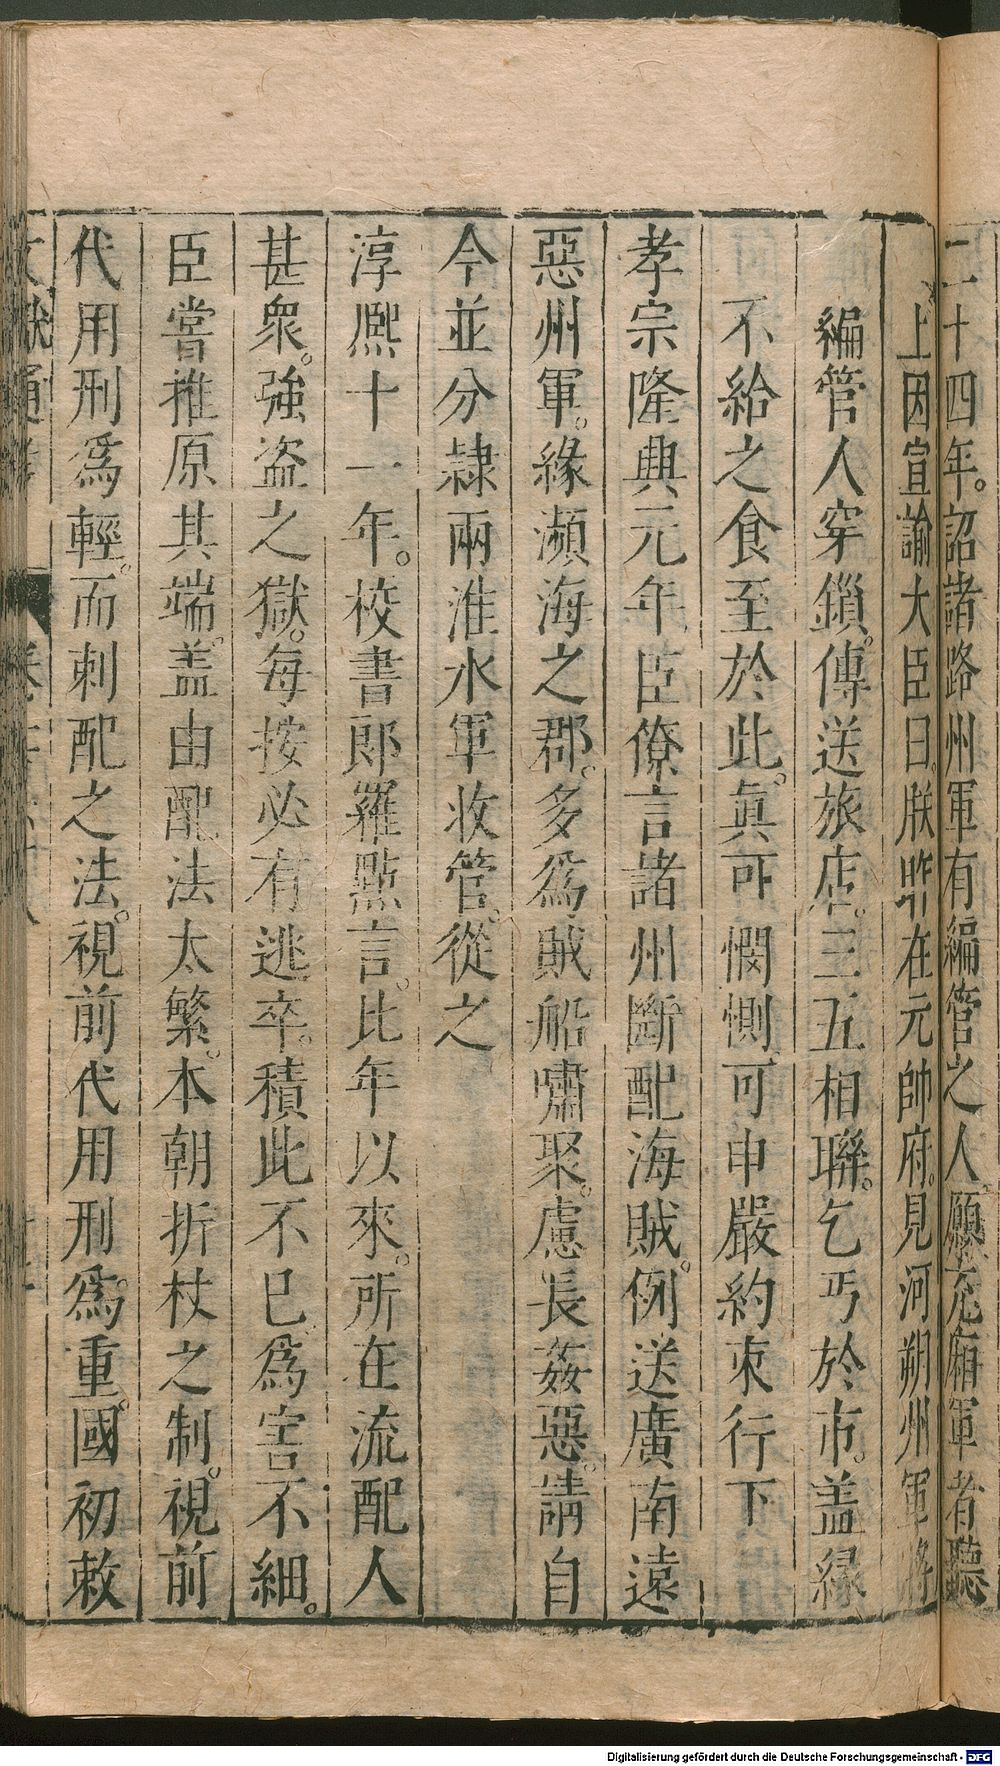 二十四年。詔諸路州軍有編管之人。願充廂軍者聽
上因宣諭大臣曰。朕昨在元帥府。見河朔州軍將
編管人穿鎖。傳送旅店。三五相聯。乞丐於市。盖縁
不給之食至於此。眞可憫惻。可申嚴約束行下
孝宗隆興元年臣僚言諸州斷配海賊。例送廣南遠
惡州軍。緣瀕海之郡。多爲賊船嘯聚。慮長姦惡。請自
今並分隷兩淮水軍收管。從之
淳熈十一年。校書郎羅點言。比年以來。所在流配人
甚衆。強盗之獄。每按必有逃卒。積此不已爲害不細。
臣嘗推原其端。盖由配法太繁。本朝折杖之制。視前
代用刑爲輕。而刺配之法。視前代用刑爲重。國初敕
文獻通考
Digitalisierung gefördert durch die Deutsche Forschungsgemeinschaft - DFG